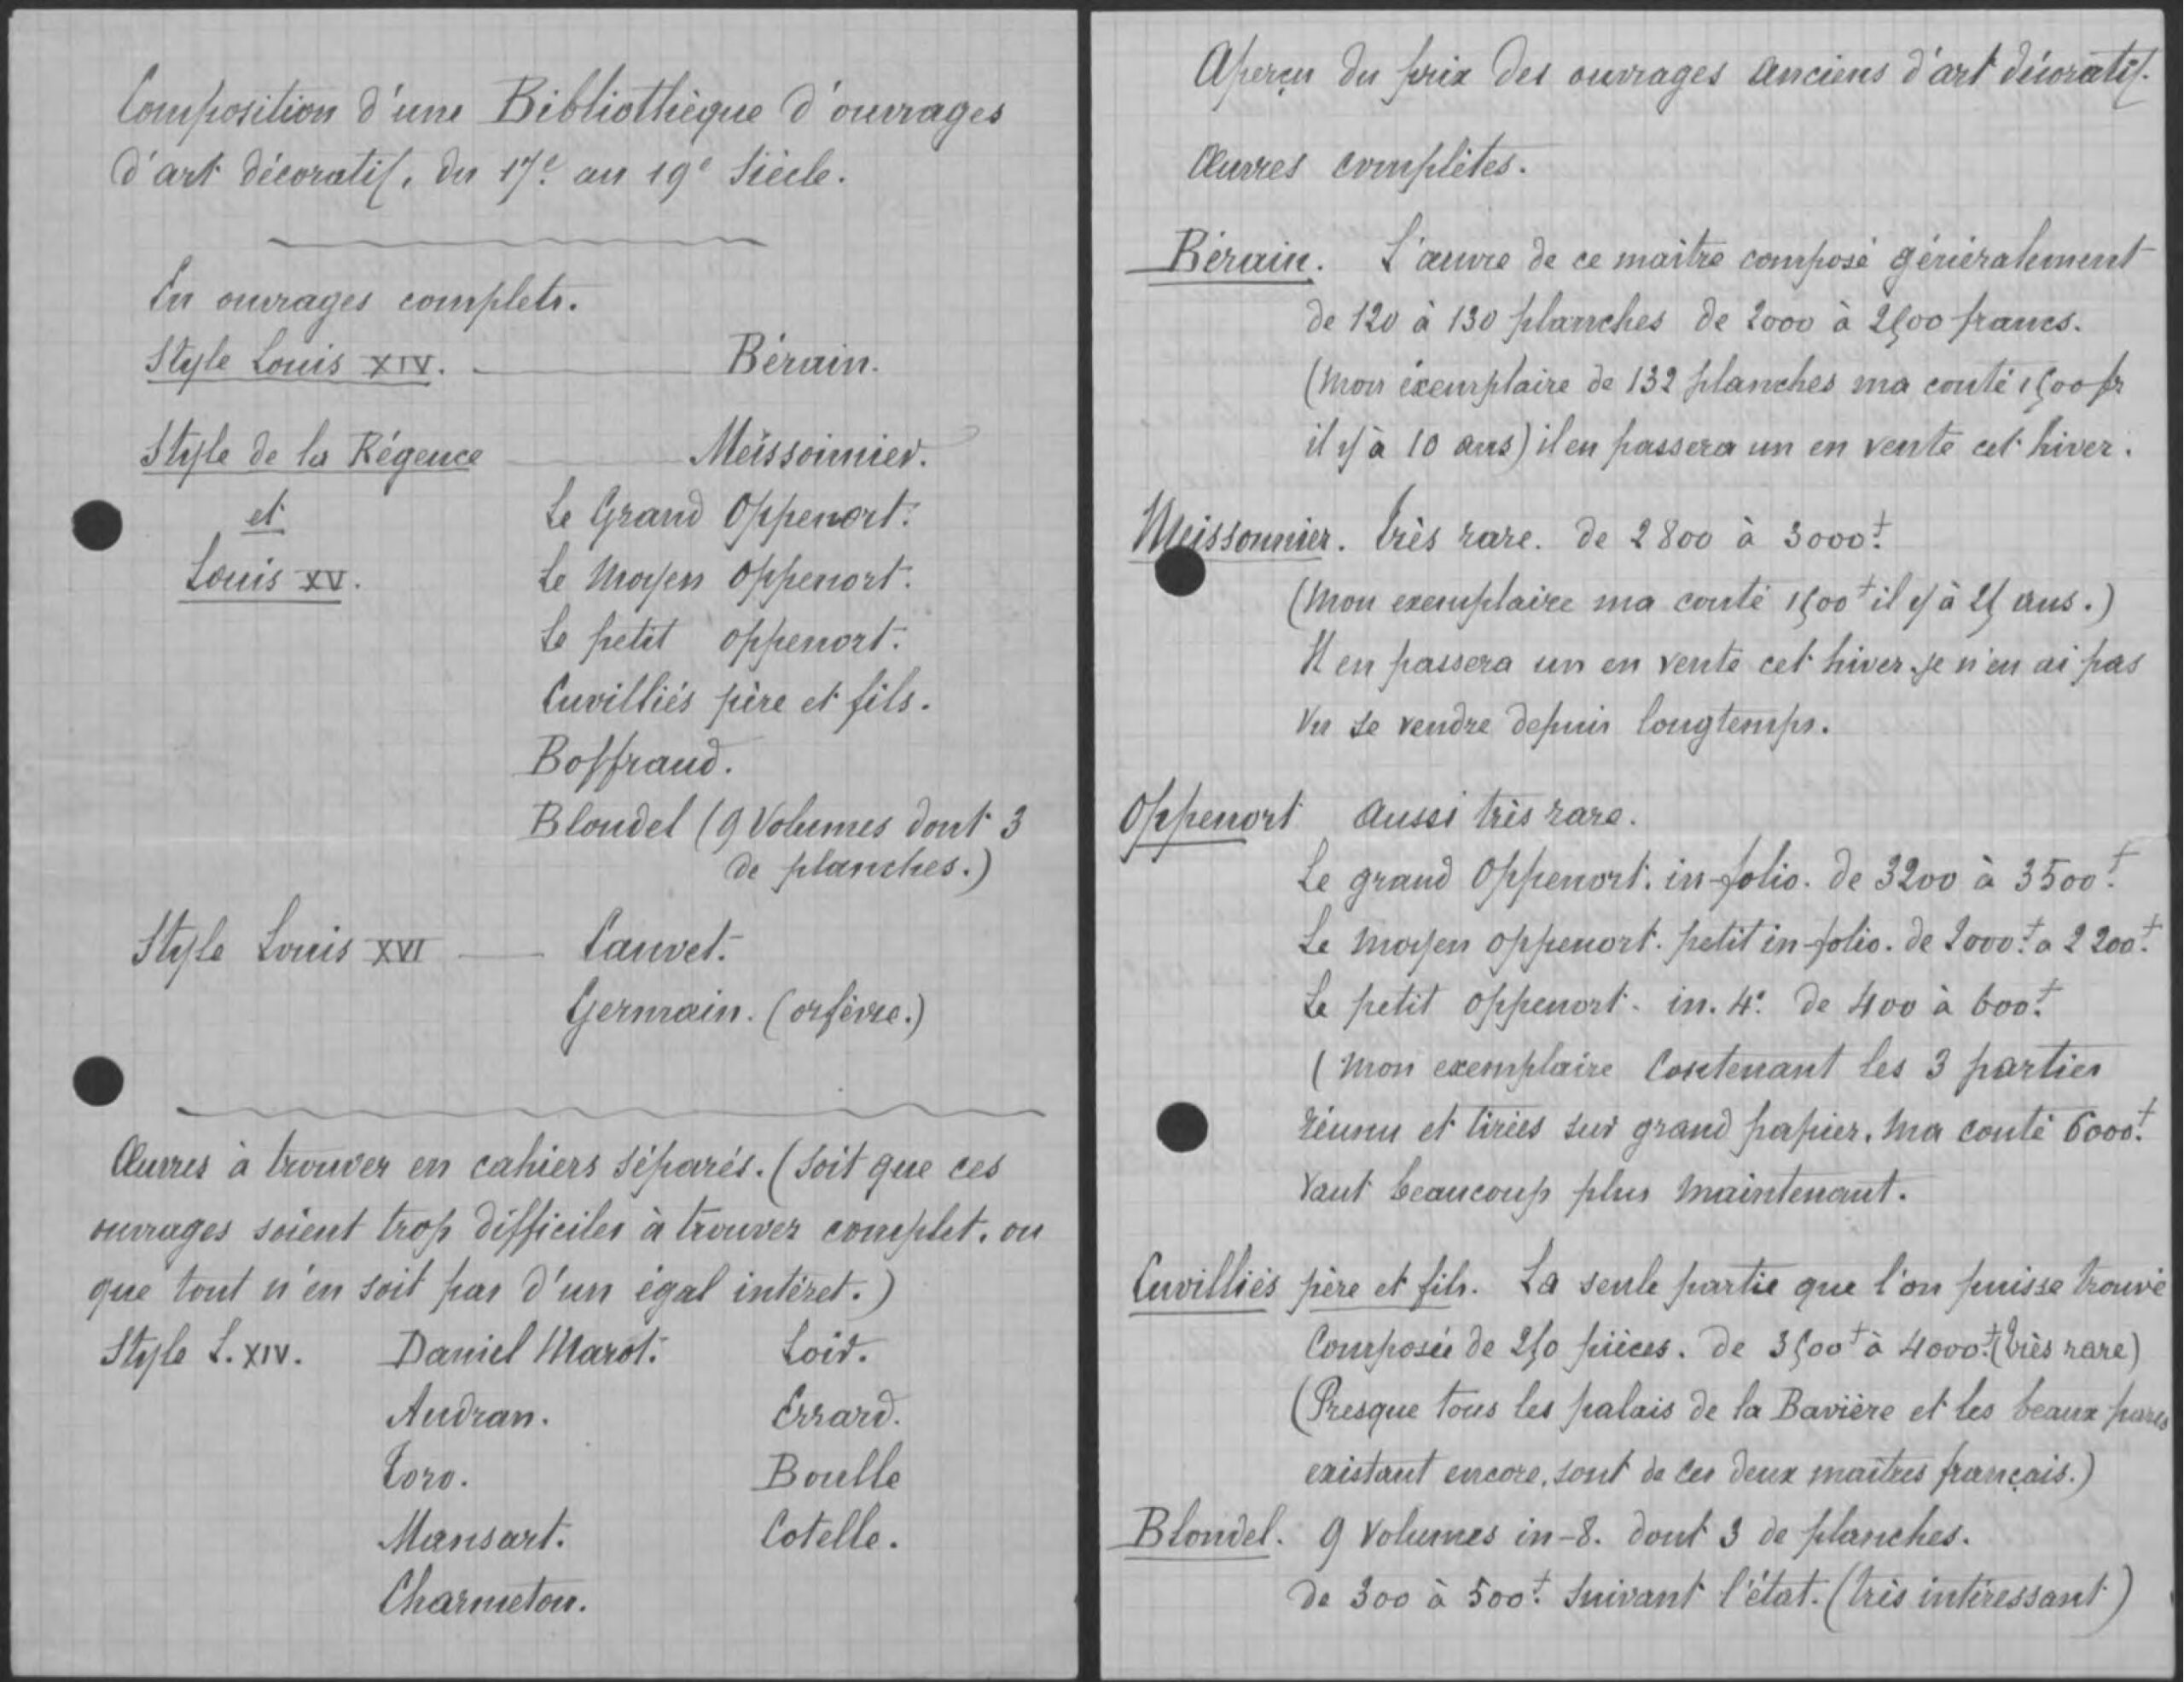 Composition d'une Bibliothèque d'ouvrages
d'art décoratif, du 17e au 19e Siècle.
En ouvrages complets.
Style Louis XIV. Bérain.
Style de la Régence Meissonnier.
et Le Grand Oppenort.
Louis XV. Le Moyen Oppenort.
Le petit oppenort.
Cuvilliés père et fils.
Boffraud.
Blondel (9 Volumes dont 3
de planches.)
Style Louis XVI Cauvet.
Germain. (orfèvre.)
Œuvres à trouver en cahiers séparés. (soit que ces
ouvrages soient trop difficiles à trouver complet, ou
que tout n'en soit pas d'un égal intéret.)
Style L. XIV. Daniel Marot. Loir.
Audran. Errard.
Toro. Boulle
Mansart. Cotelle.
Charmeton.
Aperçu du prix des ouvrages anciens d'art décoratif.
Œuvres complètes.
Bérain. L'œuvre de ce maitre composé généralement
de 120 à 130 planches de 2000 à 2500 francs.
(Mon éxemplaire de 132 planches ma couté 1500 fr
il y à 10 ans) il en passera un en vente cet hiver.
Meissonnier. Très rare. de 2800 à 3000f.
(Mon exemplaire ma couté 1500f il y à 25 ans.)
Il en passera un en vente cet hiver. je n'en ai pas
vu se vendre depuis longtemps.
Oppenort Aussi très rare.
Le grand Oppenort. in-folio. de 3200 à 3500f.
Le moyen oppenort. petit in-folio. de 2000f. a 2200f.
Le petit oppenort. in. 4° de 400 à 600f.
(Mon exemplaire Contenant les 3 parties
réunu et tirées sur grand papier. Ma couté 6000f.
Vaut beaucoup plus maintenant.
Cuvilliés père et fils. La seule partie que l'on puisse trouvé
Composée de 250 pièces. de 3500f à 4000f. (très rare)
(Presque tous les palais de la Bavière et les beaux parcs
existant encore, sont de ces deux maitres français.)
Blondel. 9 Volumes in-8. dont 3 de planches.
de 300 à 500f. suivant l'état. (très intéressant)